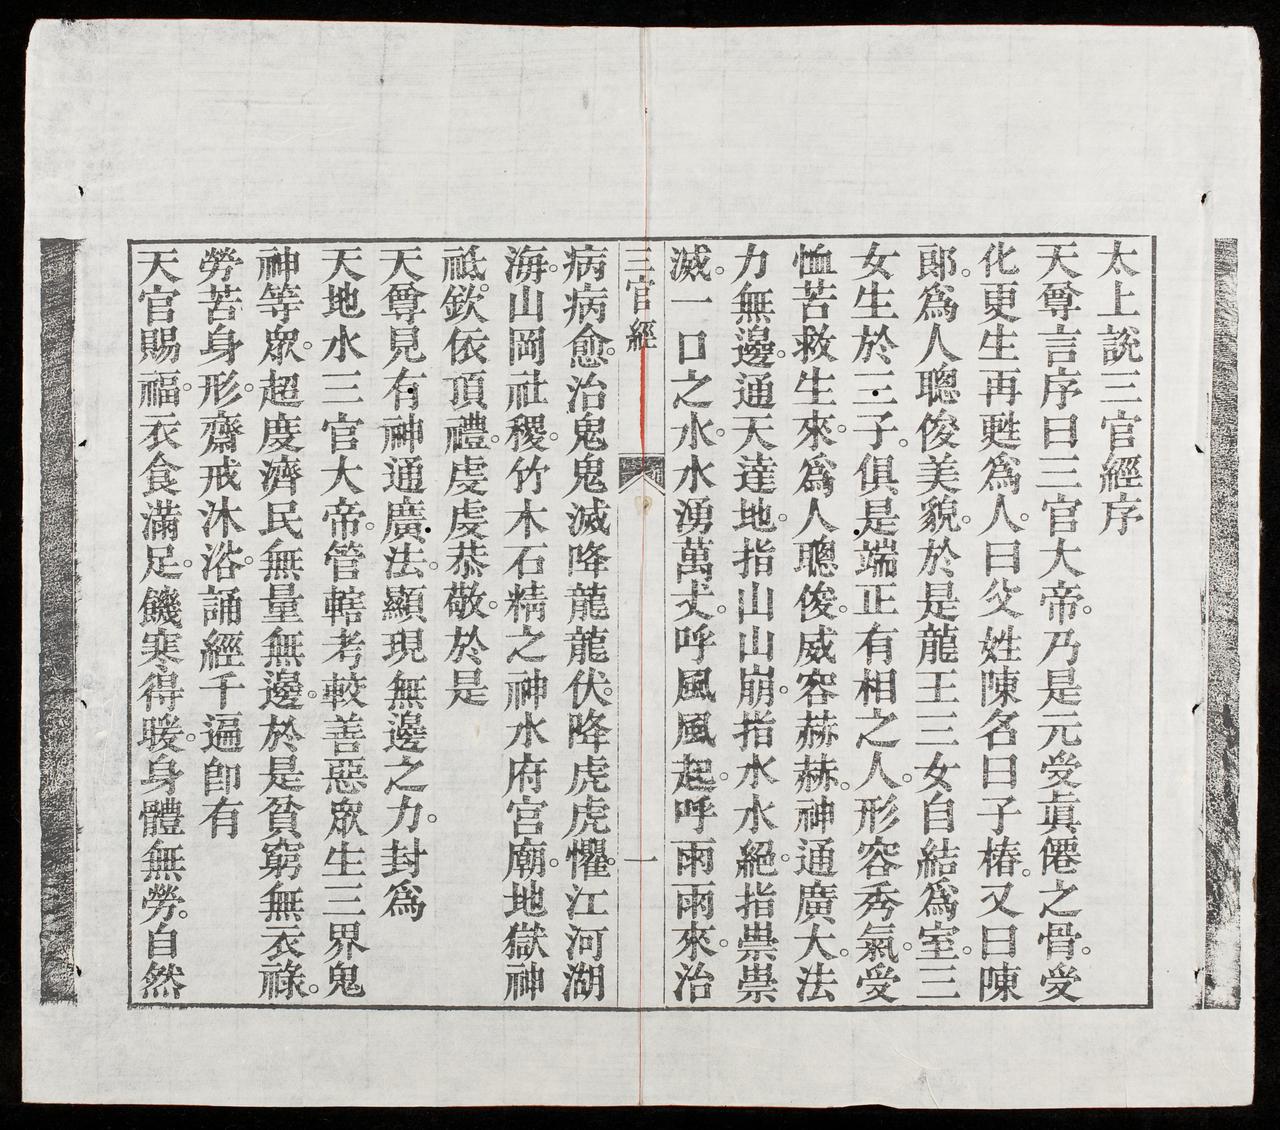 太上說三官經序
天尊言序曰三官大帝。乃是元受眞僊之骨。受
化更生再甦爲人。曰父姓陳名曰子椿。又曰陳
郎。爲人聰俊美貌。於是龍王三女自結爲室。三
女生於三子。俱是端正有相之人。形容秀氣。受
恤苦救生來。爲人聰俊。威容赫赫。神通廣大。法
力無邊。通天達地。指山山崩。指水水絕。指祟祟
滅。一口之水。水湧萬丈。呼風風起。呼雨雨來。治
三官經
一
病病愈。治鬼鬼滅降龍龍伏。降虎虎懼。江河湖
海。山岡社稷。竹木石精之神水府宮廟。地獄神
祇。欽依頂禮。虔虔恭敬。於是
天尊見有神通廣法。顯現無邊之力。封爲
天地水三官大帝。管轄考較善惡眾生三界鬼
神等眾。超度濟民無量無邊。於是貧窮無衣祿。
勞苦身形。齋戒沐浴。誦經千遍卽有
天官賜福。衣食滿足。饑寒得暖。身體無勞。自然